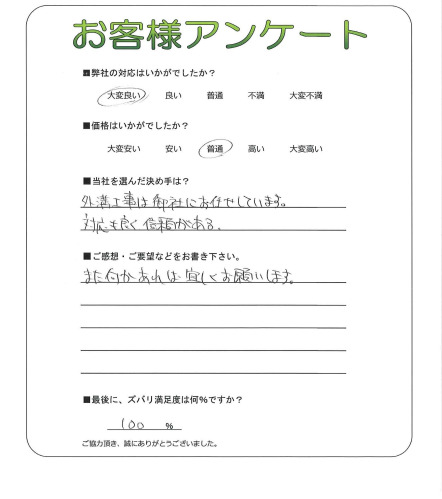 お客様アンケート
■弊社の対応はいかがでしたか?
大変良い 良い 普通 不満 大変不満
■価格はいかがでしたか?
大変安い 安い 普通 高い 大変高い
■当社を選んだ決め手は?
外溝工事は御社にお任せしています。
対応も良く信頼がある。
■ご感想・ご要望などをお書き下さい。
また何かあれば宜しくお願いします。
■最後に、ズバリ満足度は何%ですか?
100 %
ご協力頂き、誠にありがとうございました。